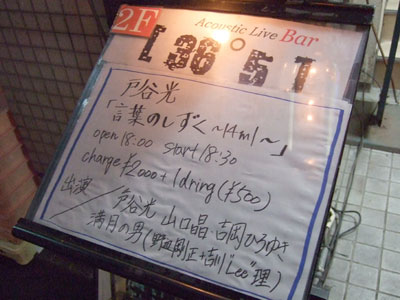 2F
Acoustic Live Bar
[36°5]
戸谷光
「言葉のしずく~14ml~」
open 18:00 start 18:30
charge ¥2000+1dring(¥500)
出演
戸谷光 山口晶・吉岡ひろゆき
満月の男(野皿剛正+吉川"Lee"理)